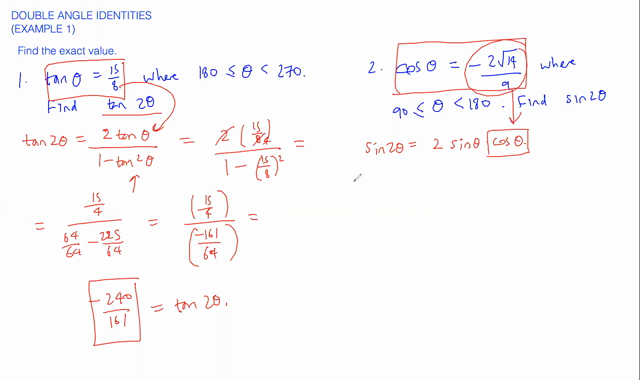 DOUBLE ANGLE IDENTITIES
(EXAMPLE 1)
Find the exact value.
1. tan θ = 15/8 where 180 ≤ θ < 270.
Find tan 2θ
tan 2θ = 2 tan θ / 1 - tan²θ = 2 (15/84) / 1 - (15/8)² =
= 15/4 / 64/64 - 225/64 = (15/4) / (-161/64) =
-240/161 = tan 2θ.
2. cos θ = -2√14/9 where
90 ≤ θ < 180. Find sin 2θ
sin 2θ = 2 sin θ cos θ.